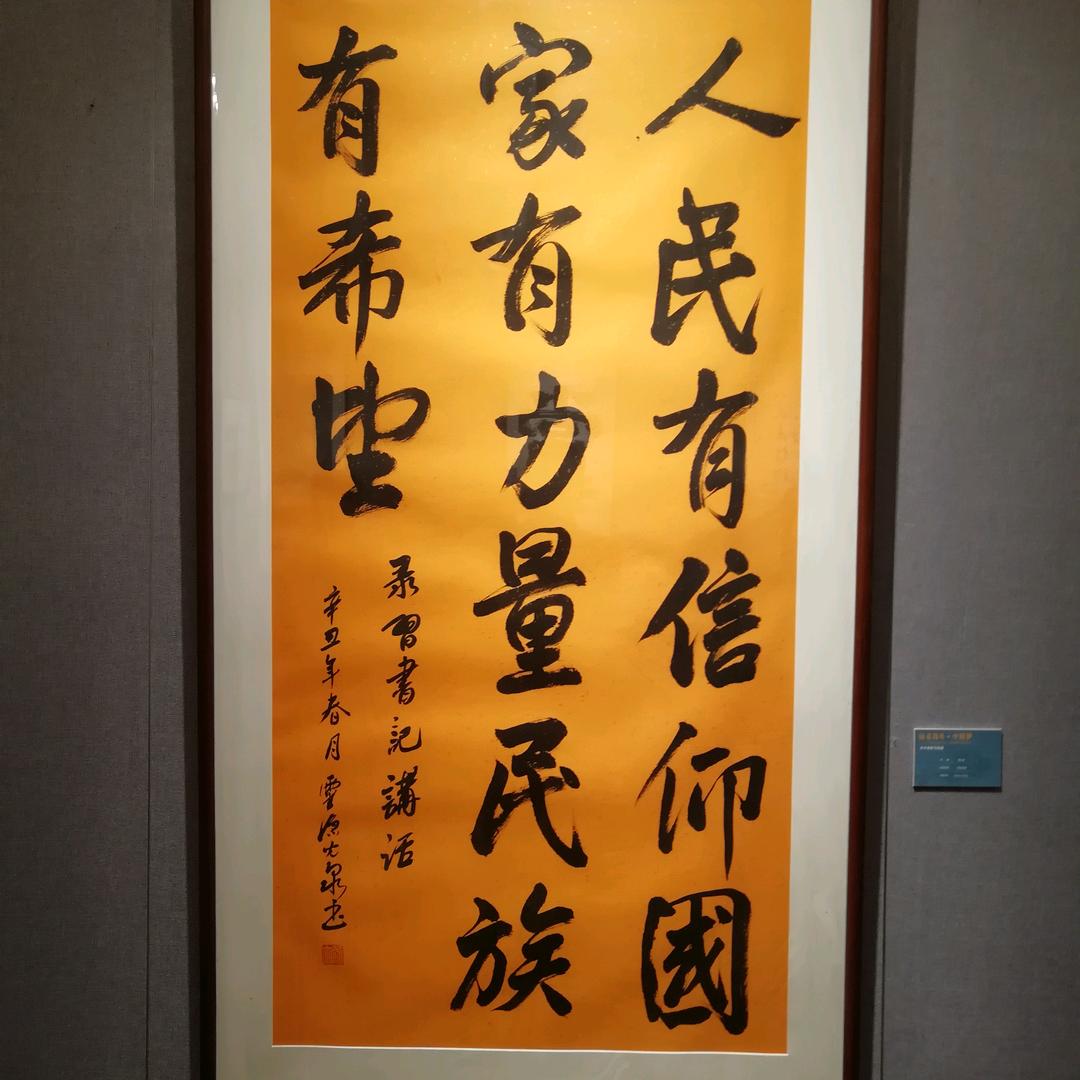 人民有信仰國
家有力量民族
有希望
录習書記講話
辛丑年春月雲